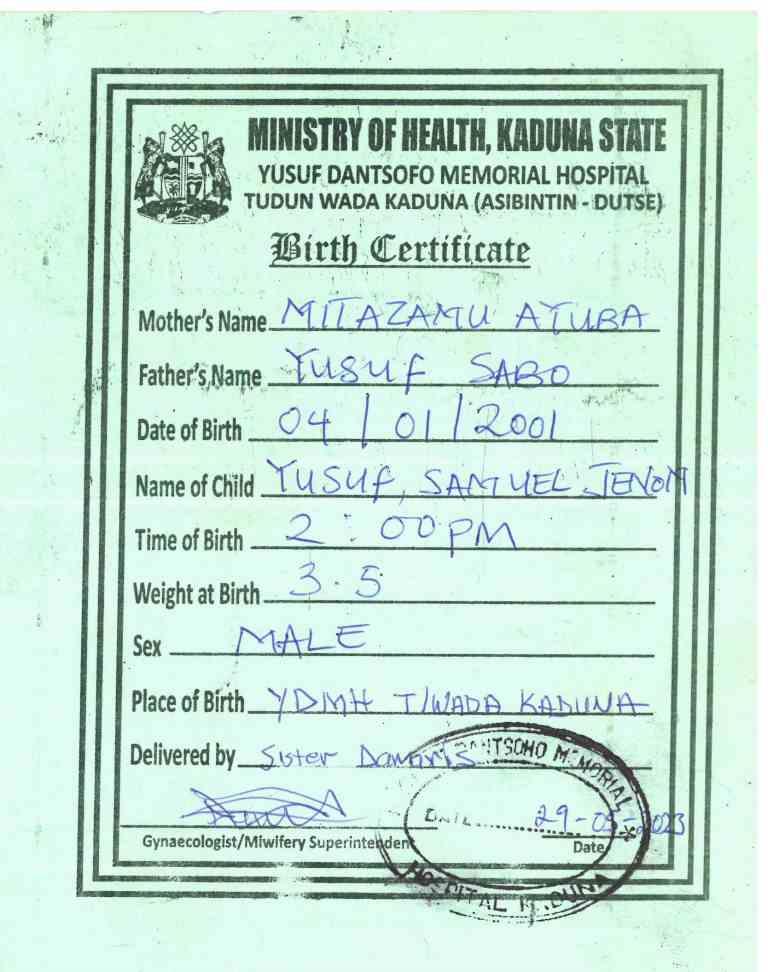 MINISTRY OF HEALTH, KADUNA STATE
YUSUF DANTSOFO MEMORIAL HOSPITAL
TUDUN WADA KADUNA (ASIBINTIN - DUTSE)
Birth Certificate
Mother's Name MITAZAMU AYUBA
Father's Name YUSUF SABO
Date of Birth 04/01/2001
Name of Child YUSUF, SAMUEL JENOM
Time of Birth 2:00PM
Weight at Birth 3.5
Sex MALE
Place of Birth YDMH T/WADA KADUNA
Delivered by Sister Damaris
DANTSOHO MEMORIAL
DATE 29-05-2023
Gynaecologist/Miwifery Superintendent Date
HOSPITAL KADUNA